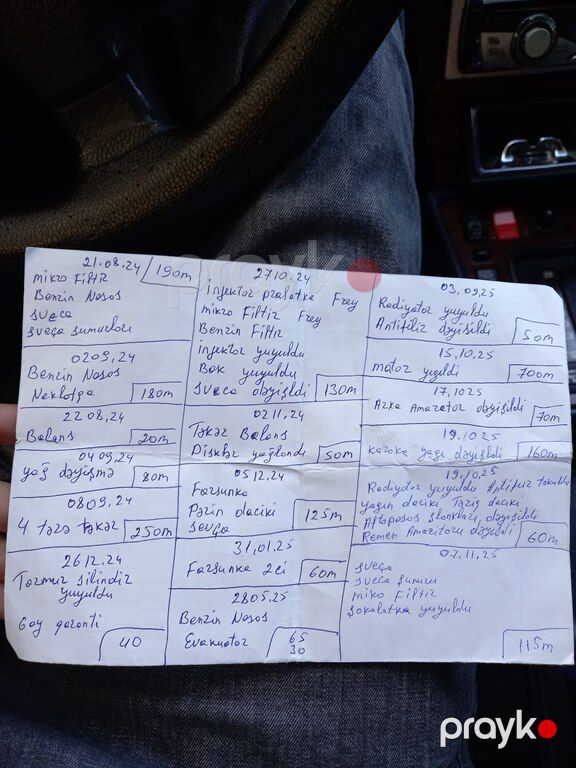 21.08.24 190m
mikro Filtir
Benzin Nasos
sveça
sveça şumurları
0209,24
Benzin Nasos
180m
22 08,24
Balans 20m
0409,24
yağ dəyişmə 80m
0809,24
4 təzə təkər 250m
26 12.24
Tərmuz silindir
yuyuldu
6ay garanti
40
2710.24
injektor pralatka Frey
mikro Filtir Frey
Benzin Filtr
injektor yuyuldu
Bak yuyuldu
sveca dəyişldi 130m
02 11.24
Təkər Balans
Disklər yağlandı 50m
05 12.24
Farsunka
Pazin daciki
sveça 125m
31,01.25
Farsunka 2ci 60m
2805.25
Benzin Nasos
Evakuator 65
30
03,09.25
Radiyator yuyuldu
Antifiliz dəyişildi 50m
15,10.25
motor yığıldı 700m
17,1025
Arxa Amazator dəyişildi 70m
19.10.25
karopka yağı dəyişildi 160m
19.10.25
Radiyator yuyuldu Antifiriz töküldü
dəyişildi
Remen dəyişdi 60m
07.11.25
sveça
sveca şumuru
miko Filtir
yuyuldu
115m
prayk
prayk